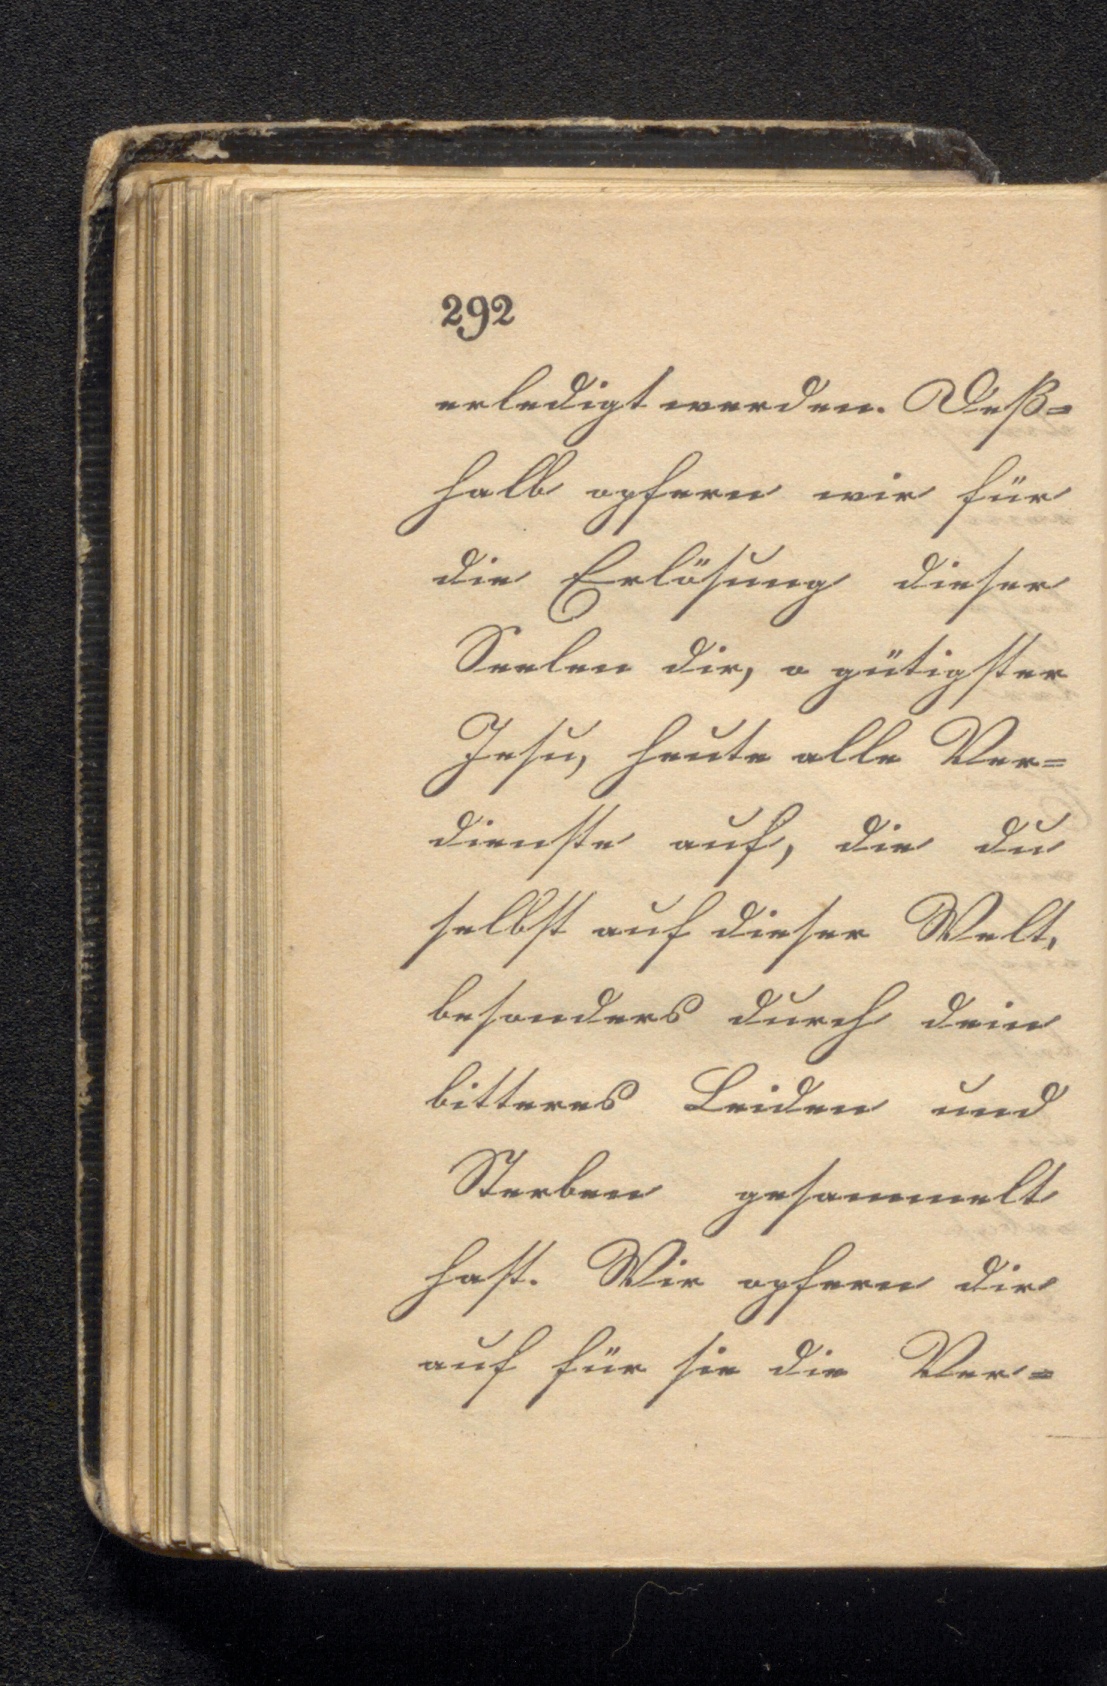 292
erledigt werden. Deß=
halb opfern wir für
die Erlösung dieser
Seelen dir, o gütigster
Jesu, heute alle Ver=
dienste auf, die du
selbst auf dieser Welt,
besonders durch dein
bitteres Leiden und
Sterben gesammelt
hast. Wir opfern dir
auf für sie die Ver=